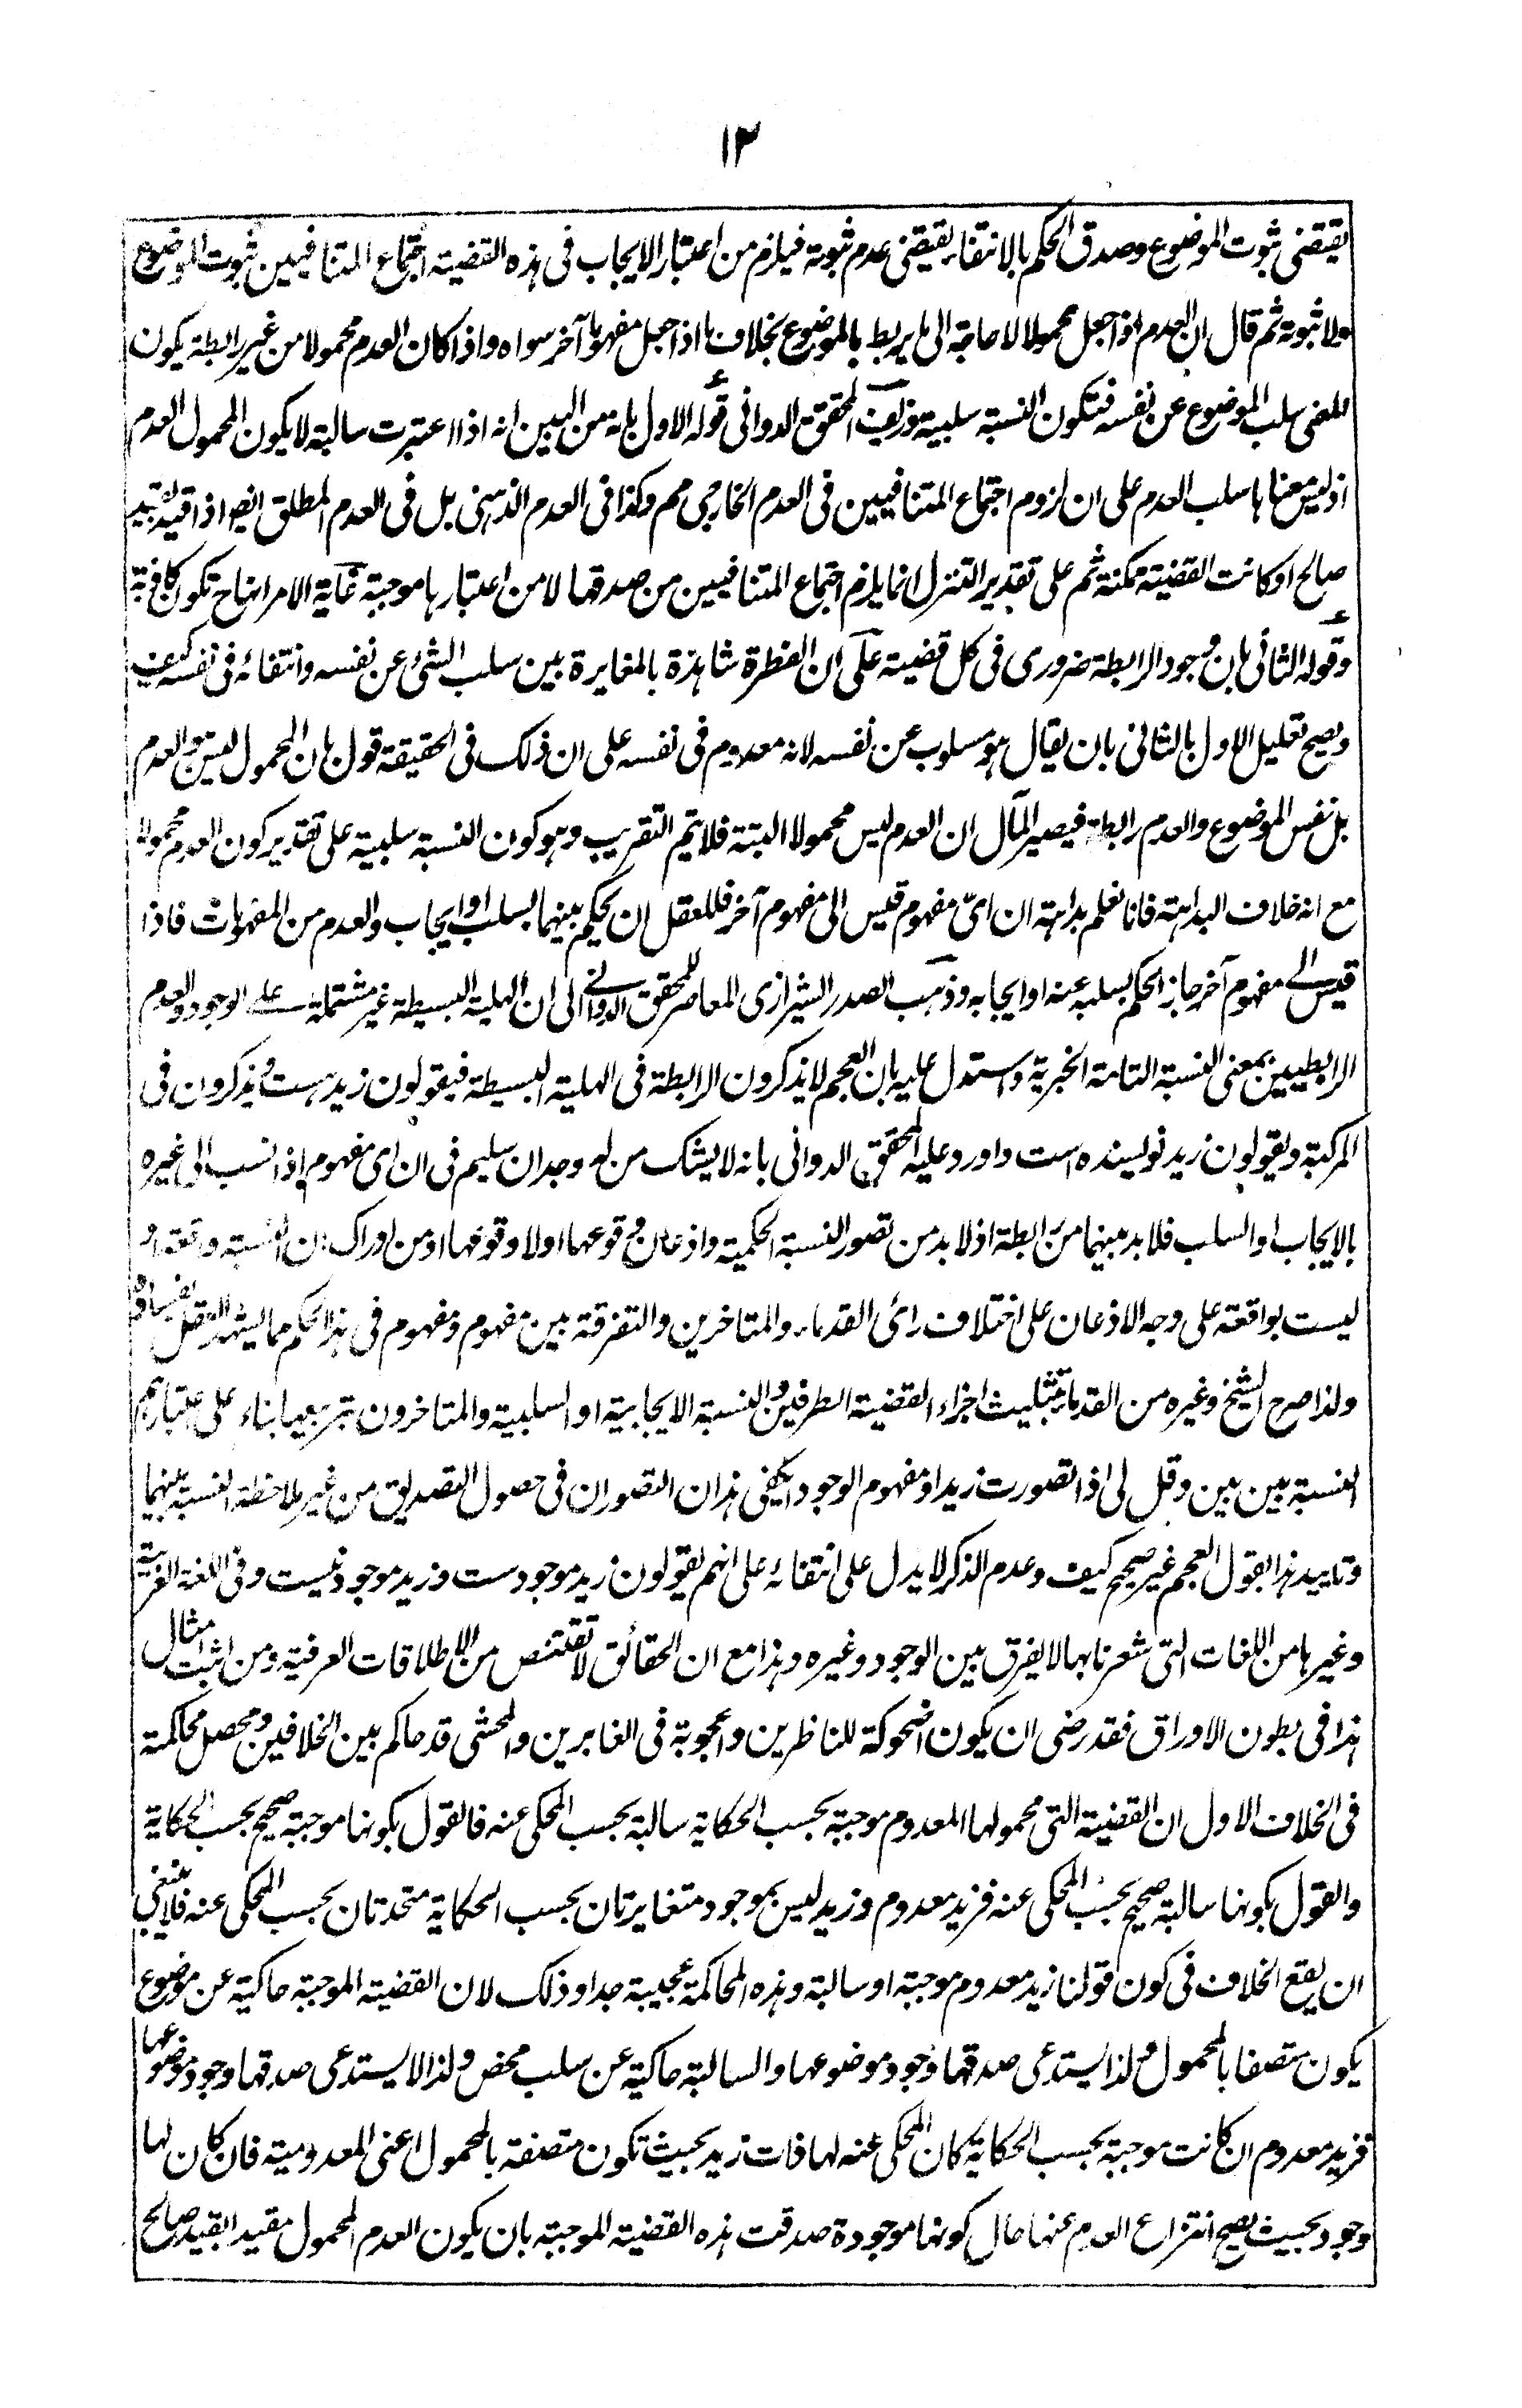 ١٢
يقتضى ثبوت الموضوع وصدق الحكم بالانتفاء يقتضى عدم ثبوته فيلزم من اعتبار الايجاب فى هذه القضية اجتماع المتنافيين ثبوت الموضوع
ولا ثبوته ثم قال ان العدم اذا جعل محمولا لا حاجة الى ما يربط بالموضوع بخلاف ما اذا جعل مفهوما آخر سواه واذا كان العدم محمولا من غير رابطة يكون
المعنى سلب الموضوع عن نفسه فتكون النسبة سلبية وزيف المحقق الدوانى قوله الاول بانه من البين انه اذا اعتبرت سالبة لا يكون المحمول العدم
اذ ليس معناها سلب العدم على ان لزوم اجتماع المتنافيين فى العدم الخارجى مم وكذا فى العدم الذهنى بل فى العدم المطلق ايضا اذا قيد بقيد
صالح او كانت القضية ممكنة ثم على تقدير التنزل انما يلزم اجتماع المتنافيين من صدقها لا من اعتبارها موجبة غاية الامر انها ح تكون كاذبة
وقوله الثانى بان وجود الرابطة ضرورى فى كل قضية على ان الفطرة شاهدة بالمغايرة بين سلب الشئ عن نفسه وانتفائه فى نفسه كيف
ويصح تعليل الاول بالثانى بان يقال هو مسلوب عن نفسه لانه معدوم فى نفسه على ان ذلك فى الحقيقة قول بان المحمول ليس هو العدم
بل نفس الموضوع والعدم رابطة فيصير المآل ان العدم ليس محمولا البتة فلا يتم التقريب وهو كون النسبة سلبية على تقدير كون العدم محمولا
مع انه خلاف البداهة فانا نعلم بداهة ان اىّ مفهوم قيس الى مفهوم آخر فللعقل ان يحكم بينهما بسلب او ايجاب والعدم من المفهومات فاذا
قيس الى مفهوم آخر جاز الحكم بسلبه عنه او ايجابه وذهب الصدر الشيرازى المعاصر للمحقق الدوانى الى ان الهلية البسيطة غير مشتملة على الوجود والعدم
الرابطيين بمعنى النسبة التامة الخبرية واستدل عليه بان العجم لا يذكرون الرابطة فى الهلية البسيطة فيقولون زيد هست ويذكرون فى
المركبة ويقولون زيد نويسنده است واورد عليه المحقق الدوانى بانه لا يشك من له وجدان سليم فى ان اى مفهوم اذا نسب الى غيره
بالايجاب او السلب فلا بد بينهما من رابطة اذ لا بد من تصور النسبة الحكمية واذعان وقوعها او لا وقوعها او من ادراك ان النسبة واقعة او
ليست بواقعة على وجه الاذعان على اختلاف رأى القدماء والمتاخرين والتفرقة بين مفهوم ومفهوم فى هذا الحكم مما يشهد العقل بفساده
ولذا صرح الشيخ وغيره من القدماء بتثليث اجزاء القضية الطرفين والنسبة الايجابية او السلبية والمتاخرون بتربيعها بناء على اعتبارهم
النسبة بين بين وقل لى اذا تصورت زيدا ومفهوم الوجود أيكفى هذان التصوران فى حصول التصديق من غير ملاحظة النسبة بينهما
وتاييد هذا بقول العجم غير صحيح كيف وعدم الذكر لا يدل على انتفائه على انهم يقولون زيد موجود ست وزيد موجود نيست وفى اللغة العربية
وغيرها من اللغات التى شعرنا بها لا يفرق بين الوجود وغيره وهذا مع ان الحقائق لا تقتنص من الاطلاقات العرفية ومن اثبت امثال
هذا فى بطون الاوراق فقد رضى ان يكون اضحوكة للناظرين واعجوبة فى الغابرين والمحشى قد حاكم بين الخلافين ومحصل محاكمته
فى الخلاف الاول ان القضية التى محمولها المعدوم موجبة بحسب الحكاية سالبة بحسب المحكى عنه فالقول بكونها موجبة صحيح بحسب الحكاية
والقول بكونها سالبة صحيح بحسب المحكى عنه فزيد معدوم وزيد ليس بموجود متغايرتان بحسب الحكاية متحدتان بحسب المحكى عنه فلا ينبغى
ان يقع الخلاف فى كون قولنا زيد معدوم موجبة او سالبة وهذه المحاكمة عجيبة جدا وذلك لان القضية الموجبة حاكية عن موضوع
يكون متصفا بالمحمول ولذا يستدعى صدقها وجود موضوعها والسالبة حاكية عن سلب محض ولذا لا يستدعى صدقها وجود موضوعها
فزيد معدوم ان كانت موجبة بحسب الحكاية كان المحكى عنه لها ذات زيد بحيث تكون متصفة بالمحمول اعنى المعدومية فان كان لها
وجود بحيث يصح انتزاع العدم عنها حال كونها موجودة صدقت هذه القضية الموجبة بان يكون العدم المحمول مقيدا بقيد صالح